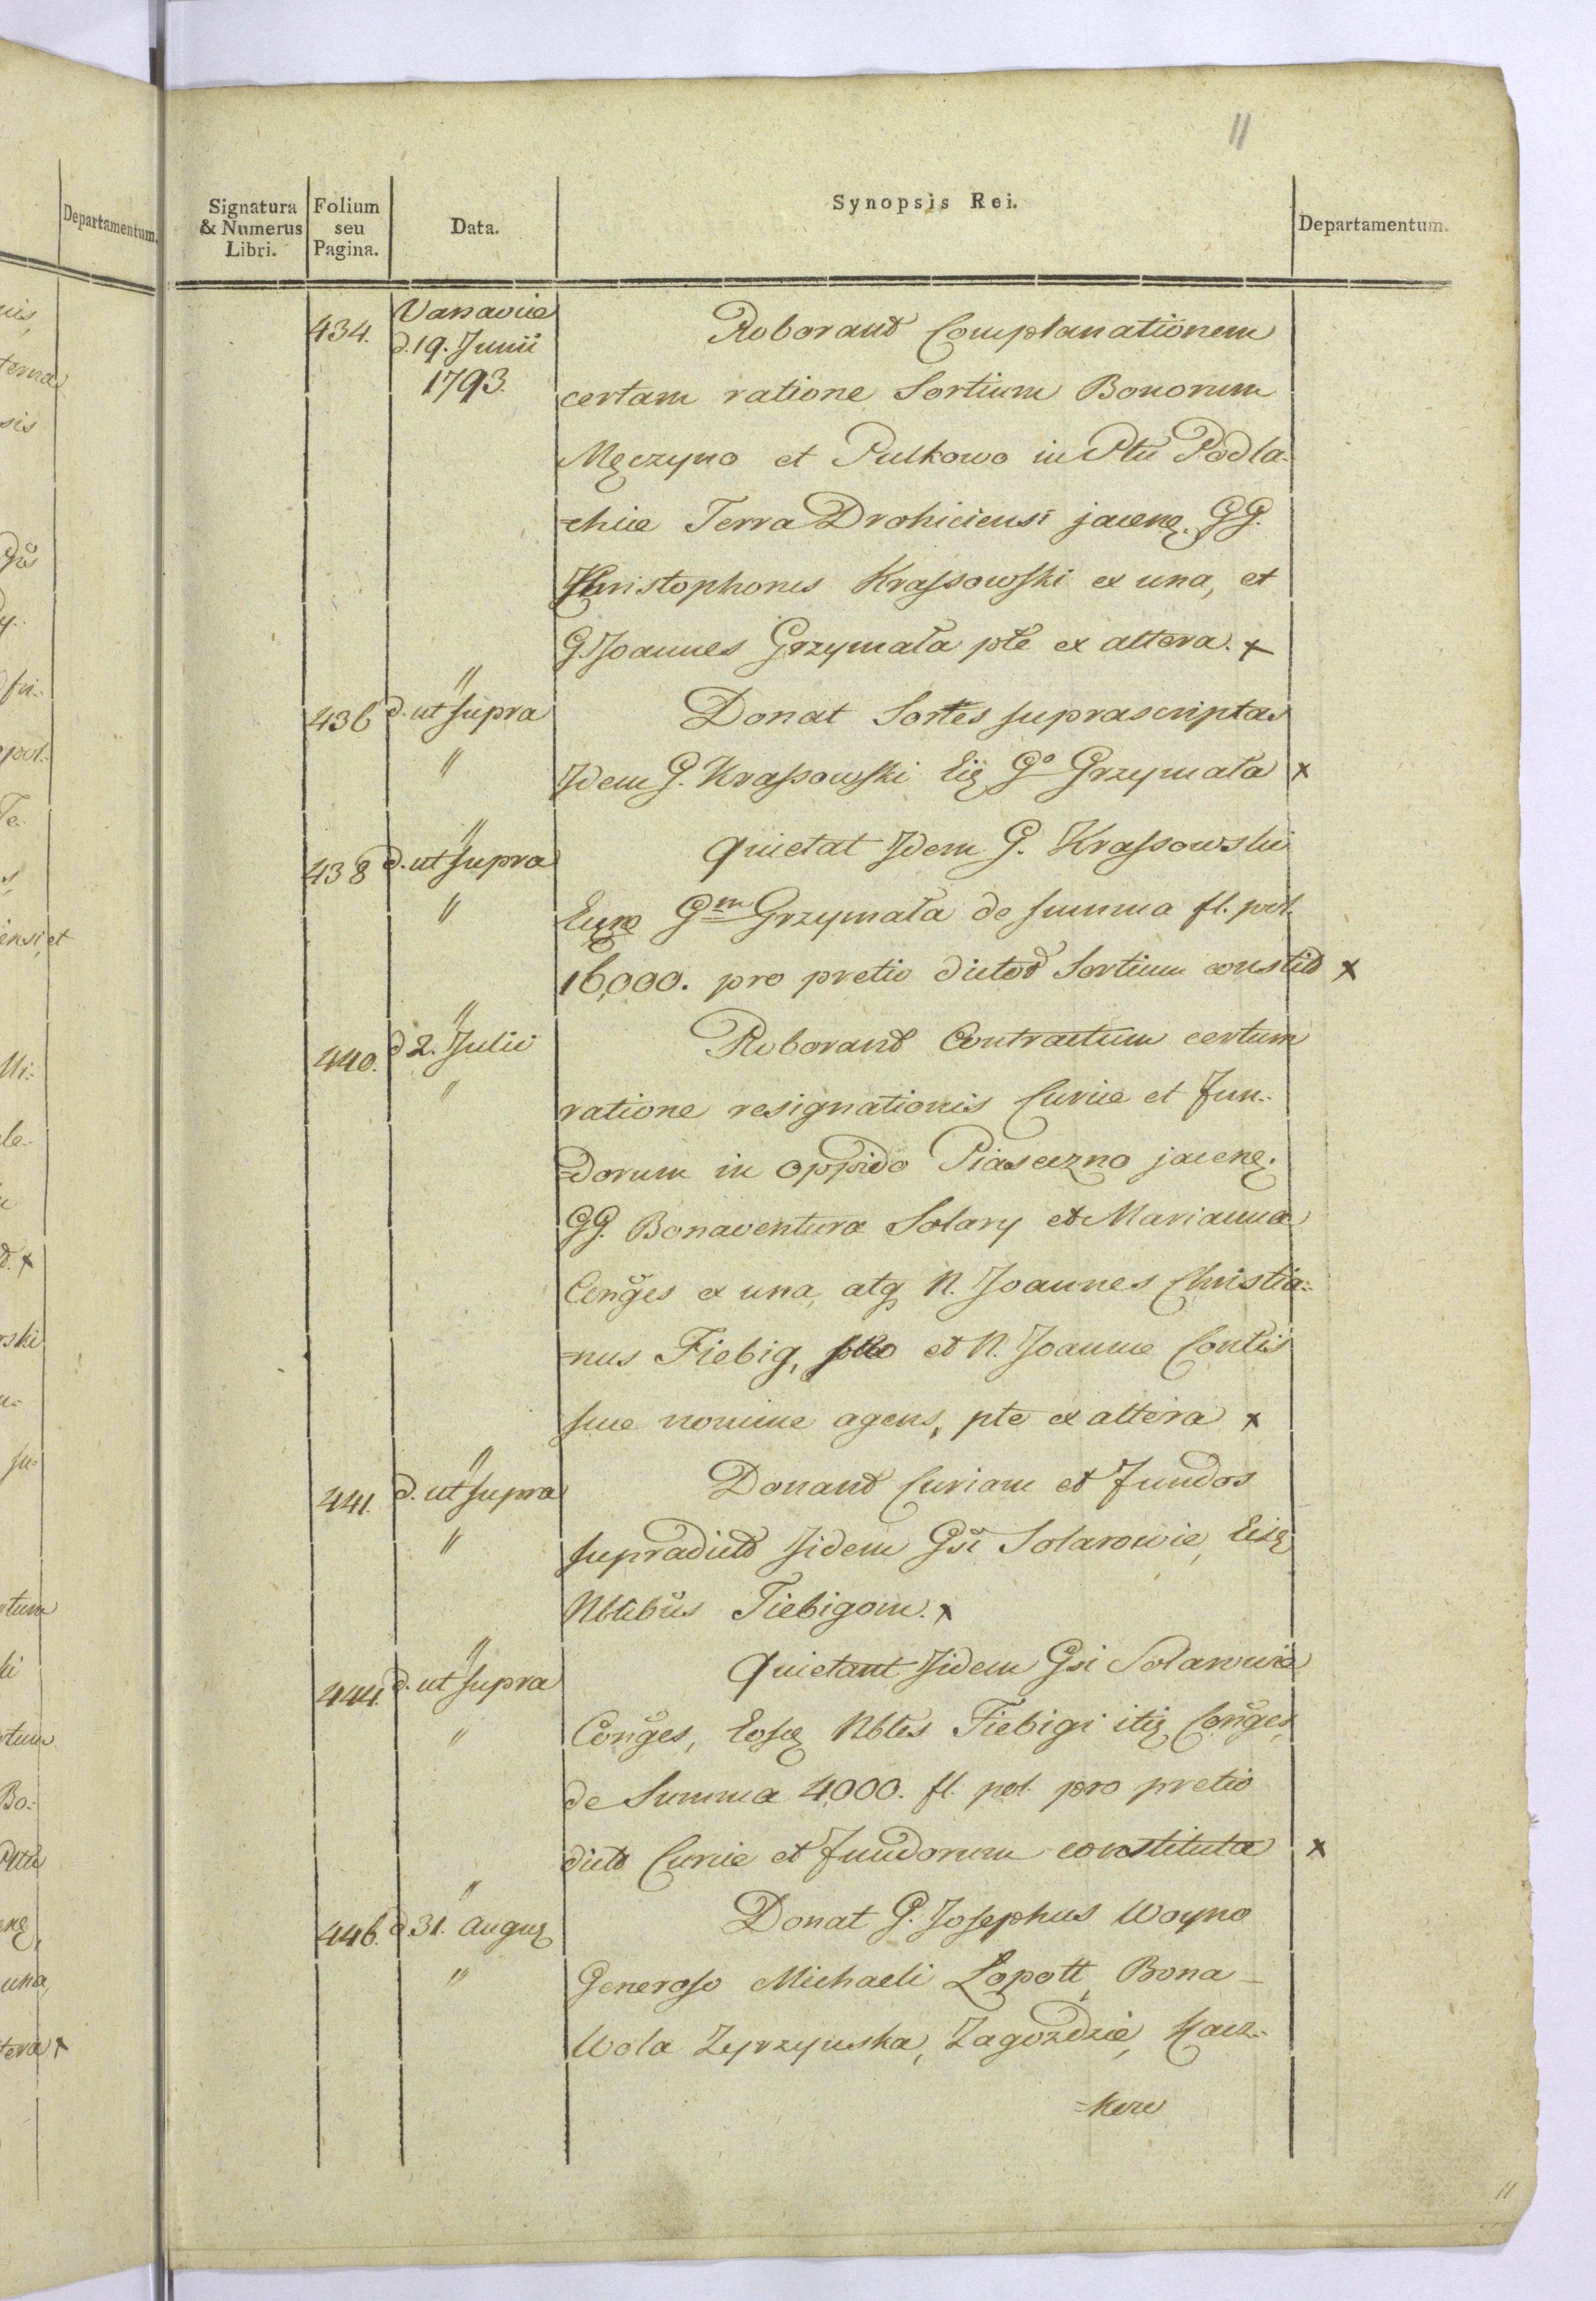 11
Signatura & Numerus Libri.
Folium seu Pagina.
Data.
Synopsis Rei.
Departamentum.
434. Varsaviæ d. 19. Junii 1793. Roborant Complanationem
certam ratione Sortium Bonorum
Męczyno et Pulkowo in Pttu Podla-
-chiæ Terra Drohiciensi jacen. GG.
Christophorus Krassowski ex una, et
G. Joannes Grzymała pte ex altera. x
436 " d. ut supra " Donat Sortes suprascriptas
Idem G. Krassowski Eiq Gº Grzymała x
438 " d. ut supra " Quietat Idem G. Krassowski
Eunq Gm Grzymała de summa fl. pol.
16,000. pro pretio dictar Sortium constit x
440. " d 2. Julii " Roborant Contractum certum
ratione resignationis Curiæ et Fun-
-dorum in oppido Piaseczno jacen.
GG. Bonaventura Solary et Marianna
Conges ex una, atq N. Joannes Christia-
-nus Fiebig, suo et N. Joannæ Contis
suæ nomine agens, pte ex altera x
441. " d. ut supra " Donant Curiam et Fundos
supradict Iidem Gsi Solarowie, Eisq
Nbtibus Fiebigom. x
444. " d. ut supra " Quietant Iidem Gsi Solarowie
Conges, Eosq Nbtes Fiebigi itiq Conges,
de Summa 4000. fl. pol. pro pretio
dict Curiæ et Fundorum constituta x
446. " d 31. Augus " Donat G. Josephus Woyno
Generoso Michaeli Łopott, Bona
Wola Zyrzynska, Zagozdzie, Kacz-
-kere
11